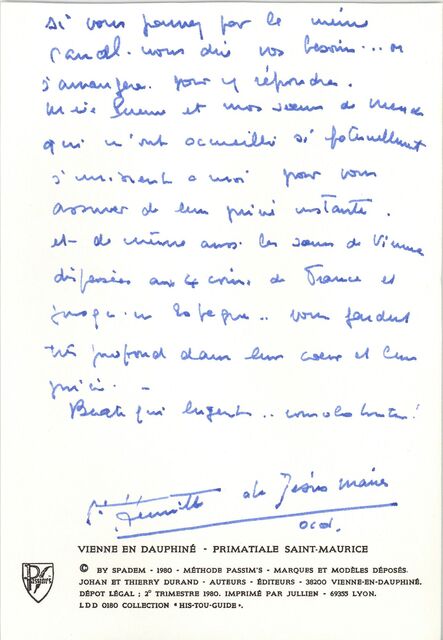 si vous pouvez par le même
canal. nous dire vos besoins... on
s'arrangera. pour y répondre.
et nos sœurs de Mende
qui m'ont accueillie si fraternellement
s'unissent à moi pour vous
assurer de leur prière instante.
et de même aussi les sœurs de Vienne
dispersées aux 4 coins de France et
jusqu'en Espagne.. vous gardent
très profond dans leur cœur et leur
prière. -
Beati qui lugent..
de Jésus Marie
ocd.
VIENNE EN DAUPHINÉ - PRIMATIALE SAINT-MAURICE
© BY SPADEM - 1980 - MÉTHODE PASSIM'S - MARQUES ET MODÈLES DÉPOSÉS.
JOHAN ET THIERRY DURAND - AUTEURS - ÉDITEURS - 38200 VIENNE-EN-DAUPHINÉ.
DÉPOT LÉGAL ; 2° TRIMESTRE 1980. IMPRIMÉ PAR JULLIEN - 69355 LYON.
LDD 0180 COLLECTION "HIS-TOU-GUIDE".
Passim's